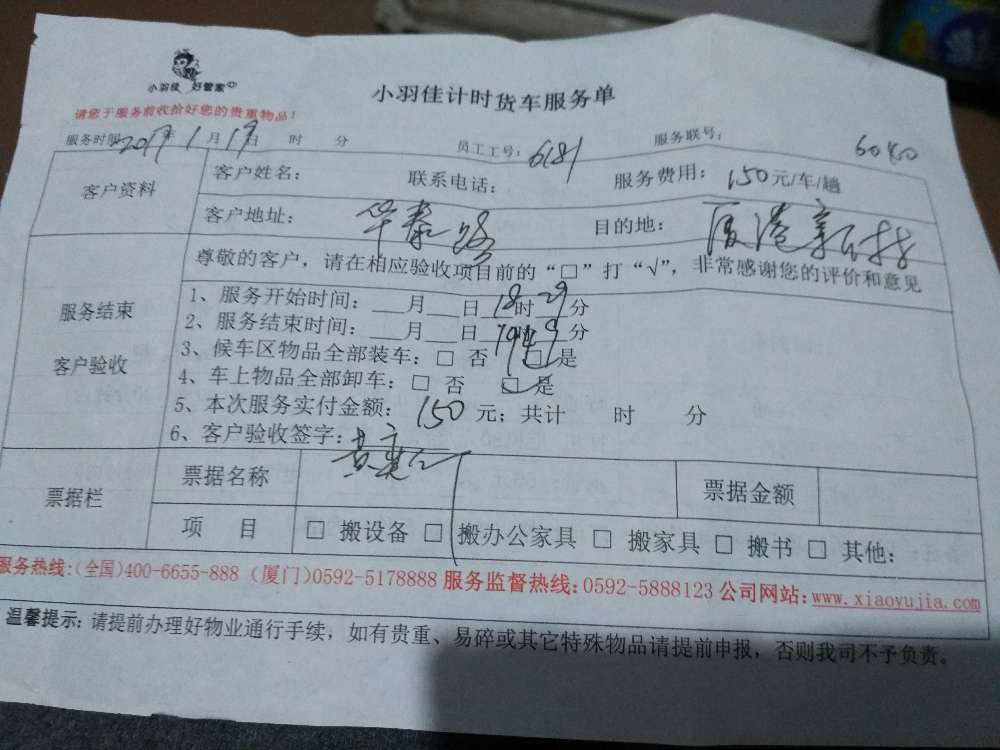 小羽佳 好管家
小羽佳计时货车服务单
请您于服务前收拾好您的贵重物品!
服务时间 2017年1月19日 时 分 员工工号: 6181 服务联号: 60400
客户资料
客户姓名: 联系电话: 服务费用: 150元/车/趟
客户地址: 华泰路 目的地: 厦港新村
服务结束
客户验收
尊敬的客户,请在相应验收项目前的“□”打“√”,非常感谢您的评价和意见
1、服务开始时间: ___月___日18时29分
2、服务结束时间: ___月___日19时49分
3、候车区物品全部装车: □ 否 □ 是
4、车上物品全部卸车: □ 否 □ 是
5、本次服务实付金额: 150 元; 共计 时 分
6、客户验收签字:
票据栏
票据名称 票据金额
项 目 □ 搬设备 □ 搬办公家具 □ 搬家具 □ 搬书 □ 其他:
服务热线:(全国)400-6655-888 (厦门)0592-5178888 服务监督热线:0592-5888123 公司网站:www.xiaoyujia.com
温馨提示:请提前办理好物业通行手续,如有贵重、易碎或其它特殊物品请提前申报,否则我司不予负责。